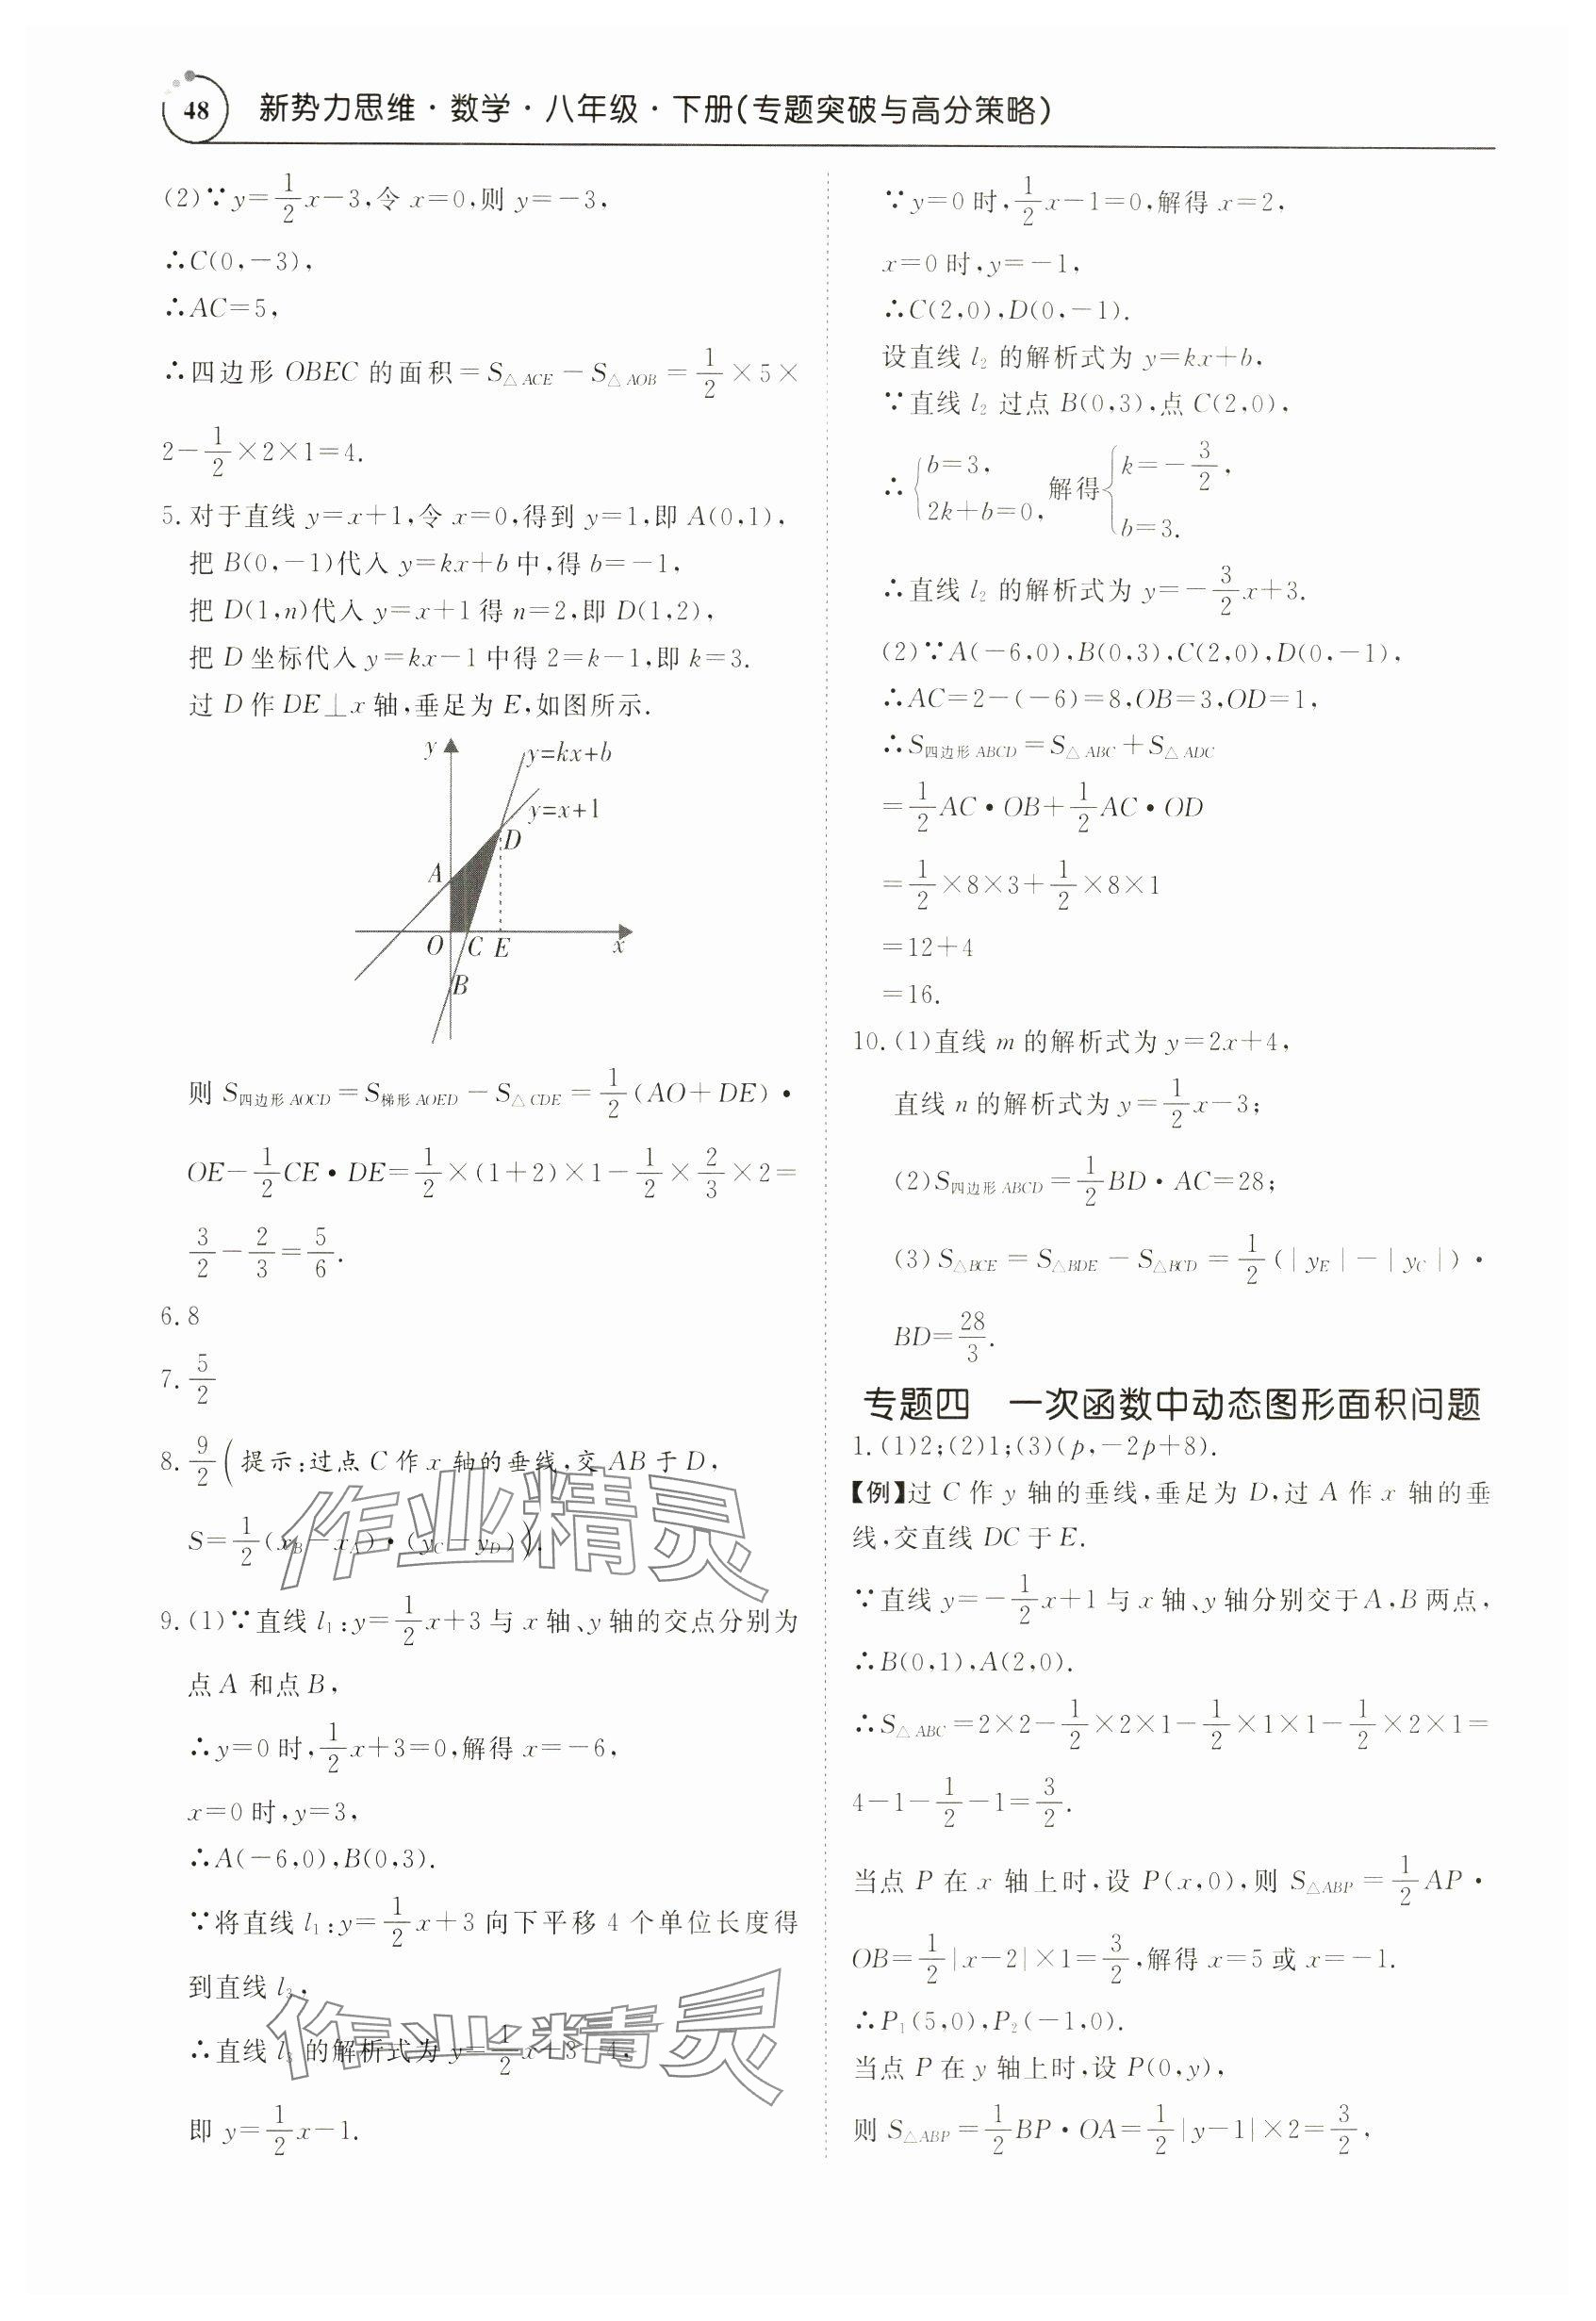 48 新势力思维·数学·八年级·下册(专题突破与高分策略)
(2)∵y=1/2x-3,令 x=0,则 y=-3,
∴C(0,-3),
∴AC=5,
∴四边形 OBEC 的面积=S△ACE-S△AOB=1/2×5×
2-1/2×2×1=4.
5.对于直线 y=x+1,令 x=0,得到 y=1,即 A(0,1),
把 B(0,-1)代入 y=kx+b 中,得 b=-1,
把 D(1,n)代入 y=x+1 得 n=2,即 D(1,2),
把 D 坐标代入 y=kx-1 中得 2=k-1,即 k=3.
过 D 作 DE⊥x 轴,垂足为 E,如图所示.
y
y=kx+b
y=x+1
D
A
O C E x
B
则 S四边形AOCD=S梯形AOED-S△CDE=1/2(AO+DE)·
OE-1/2CE·DE=1/2×(1+2)×1-1/2×2/3×2=
3/2-2/3=5/6.
6.8
7.5/2
8.9/2(提示:过点 C 作 x 轴的垂线,交 AB 于 D,
S=1/2(xB-xA)·(yC-yD)).
9.(1)∵直线 l1:y=1/2x+3 与 x 轴、y 轴的交点分别为
点 A 和点 B,
∴y=0 时,1/2x+3=0,解得 x=-6,
x=0 时,y=3,
∴A(-6,0),B(0,3).
∵将直线 l1:y=1/2x+3 向下平移 4 个单位长度得
到直线 l3,
∴直线 l3 的解析式为 y=1/2x+3-4,
即 y=1/2x-1.
∵y=0 时,1/2x-1=0,解得 x=2,
x=0 时,y=-1,
∴C(2,0),D(0,-1).
设直线 l2 的解析式为 y=kx+b,
∵直线 l2 过点 B(0,3),点 C(2,0),
∴{b=3, 2k+b=0, 解得{k=-3/2, b=3.
∴直线 l2 的解析式为 y=-3/2x+3.
(2)∵A(-6,0),B(0,3),C(2,0),D(0,-1),
∴AC=2-(-6)=8,OB=3,OD=1,
∴S四边形ABCD=S△ABC+S△ADC
=1/2AC·OB+1/2AC·OD
=1/2×8×3+1/2×8×1
=12+4
=16.
10.(1)直线 m 的解析式为 y=2x+4,
直线 n 的解析式为 y=1/2x-3;
(2)S四边形ABCD=1/2BD·AC=28;
(3)S△BCE=S△BDE-S△BCD=1/2(|yE|-|yC|)·
BD=28/3.
专题四 一次函数中动态图形面积问题
1.(1)2;(2)1;(3)(p,-2p+8).
【例】过 C 作 y 轴的垂线,垂足为 D,过 A 作 x 轴的垂
线,交直线 DC 于 E.
∵直线 y=-1/2x+1 与 x 轴、y 轴分别交于 A,B 两点,
∴B(0,1),A(2,0).
∴S△ABC=2×2-1/2×2×1-1/2×1×1-1/2×2×1=
4-1-1/2-1=3/2.
当点 P 在 x 轴上时,设 P(x,0),则 S△ABP=1/2AP·
OB=1/2|x-2|×1=3/2,解得 x=5 或 x=-1.
∴P1(5,0),P2(-1,0).
当点 P 在 y 轴上时,设 P(0,y),
则 S△ABP=1/2BP·OA=1/2|y-1|×2=3/2,
作业精灵
作业精灵